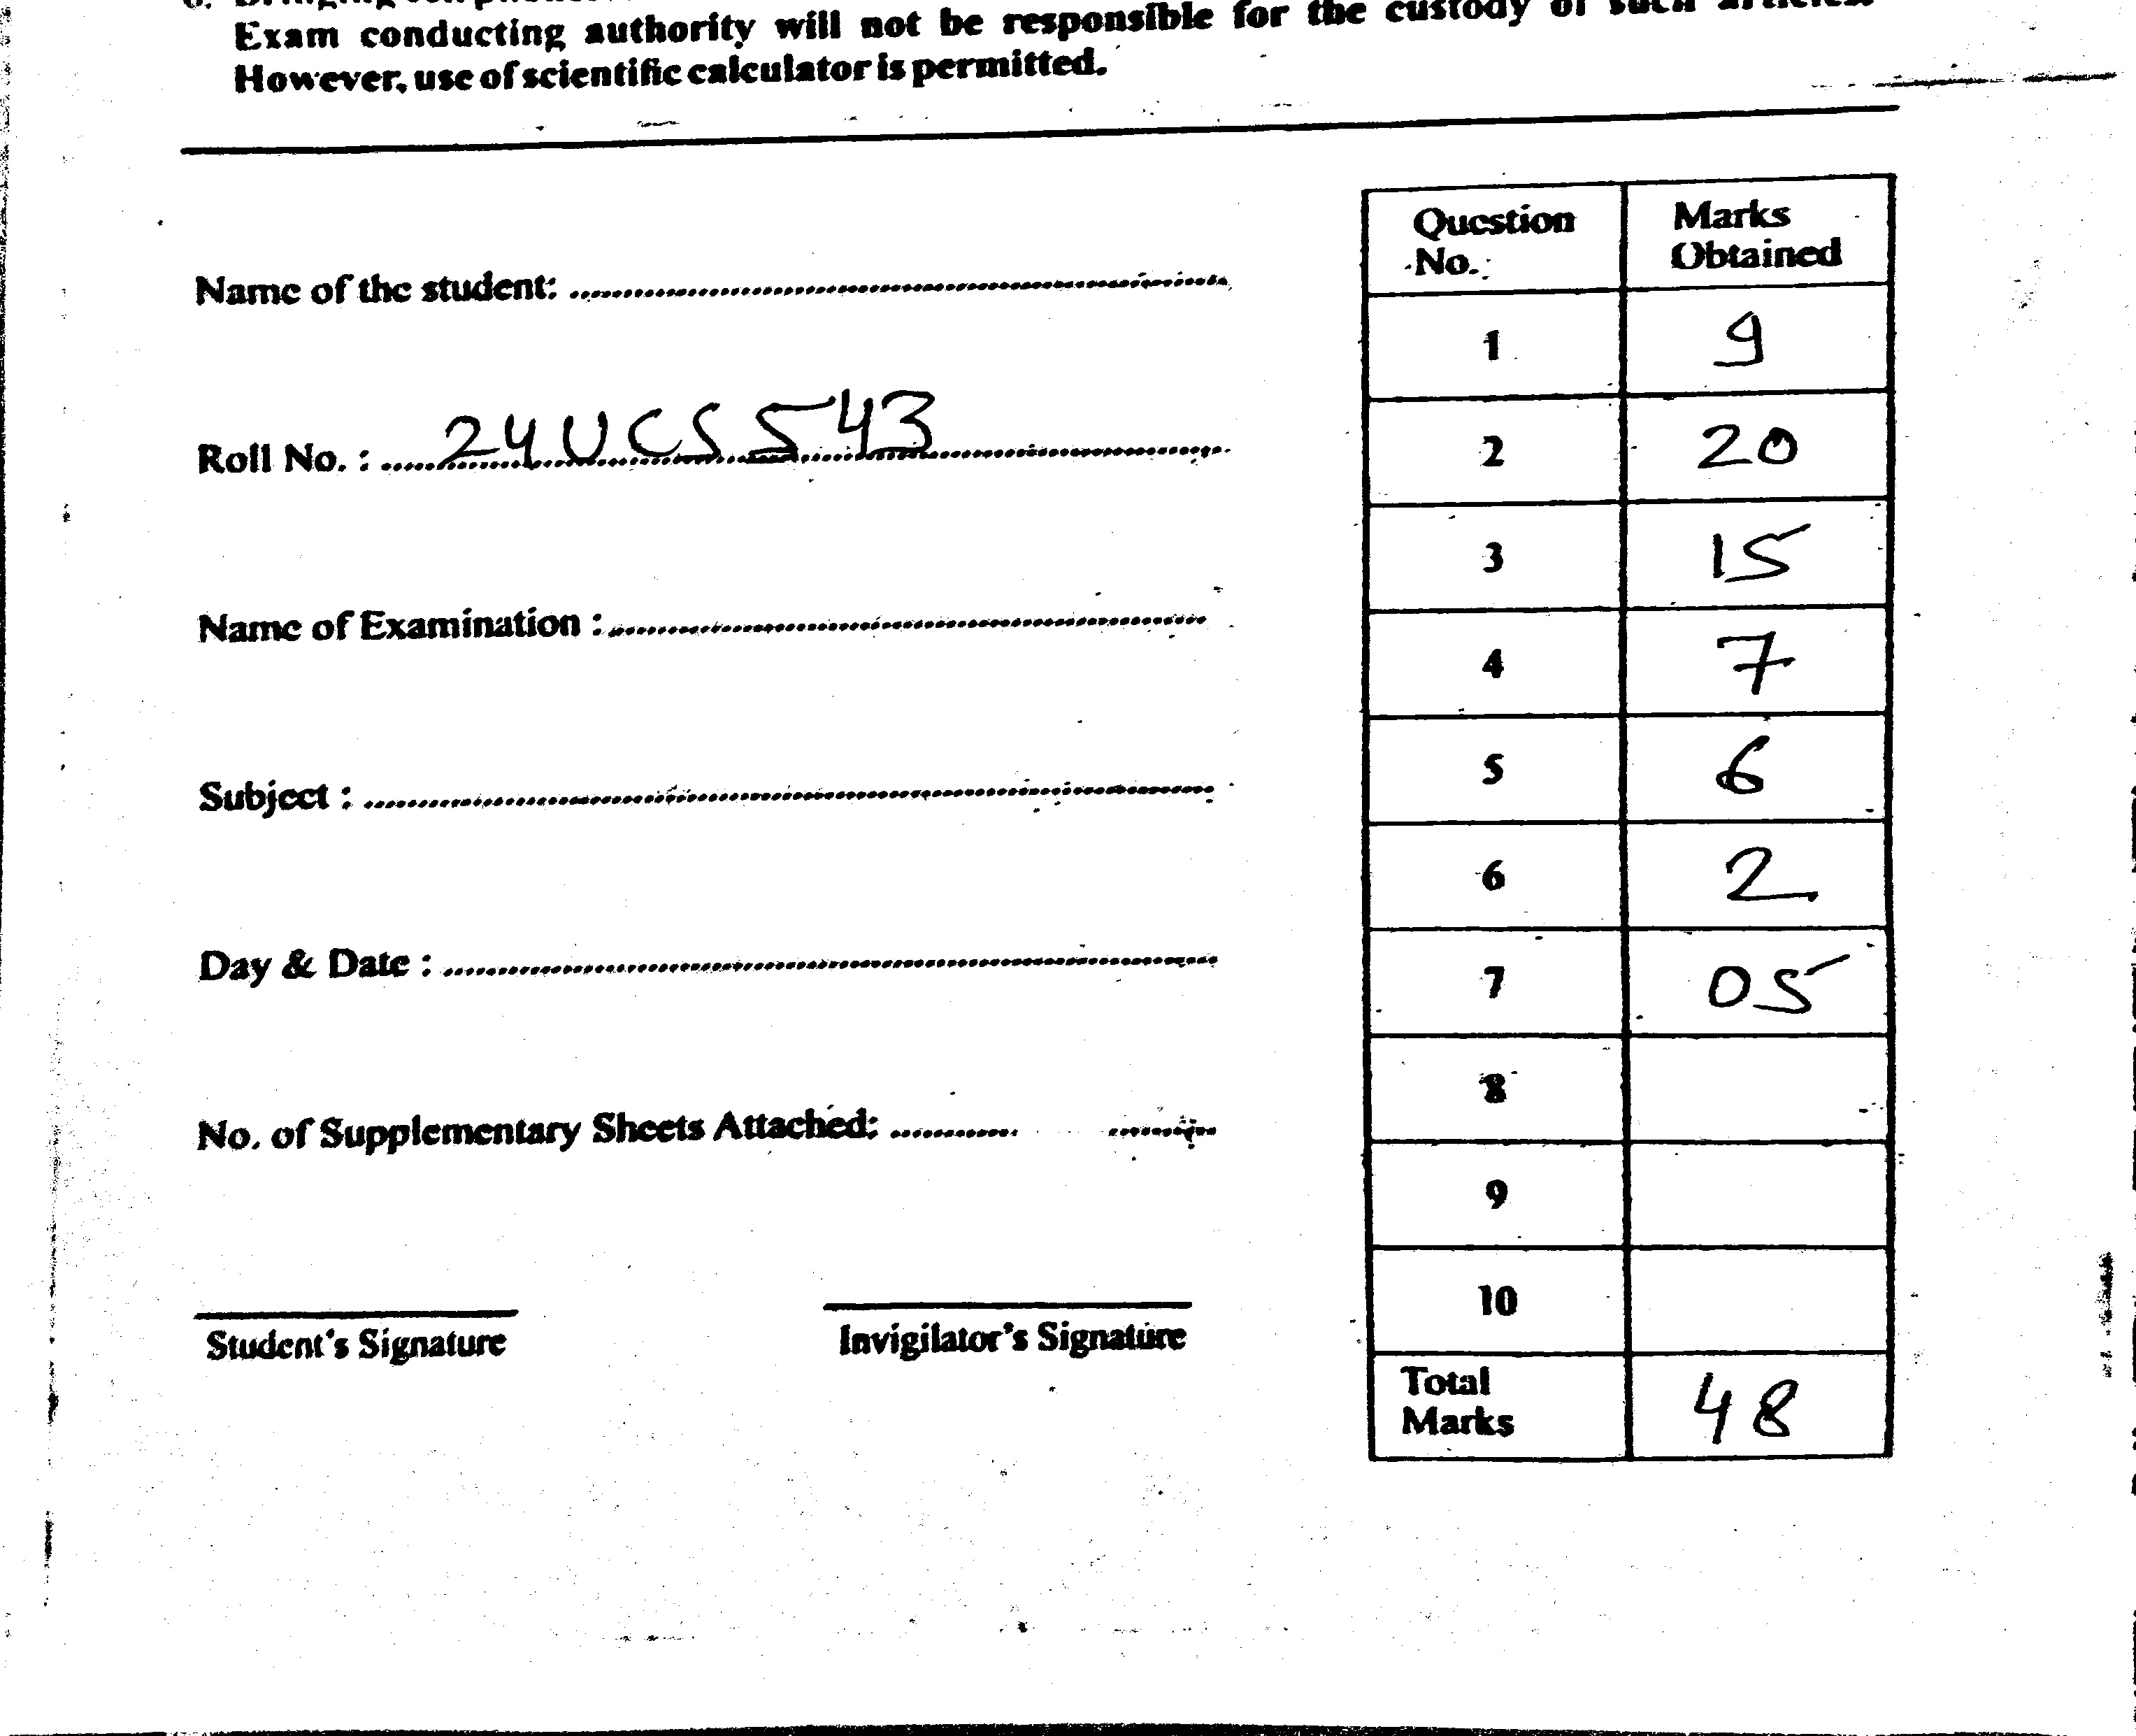 Exam conducting authority will not be responsible for the custody of such articles.
However, use of scientific calculator is permitted.
Name of the student:
Roll No. : 24UCS543
Name of Examination :
Subject :
Day & Date :
No. of Supplementary Sheets Attached:
Student's Signature Invigilator's Signature
Question No. Marks Obtained
1 9
2 20
3 15
4 7
5 6
6 2
7 05
8
9
10
Total Marks 48